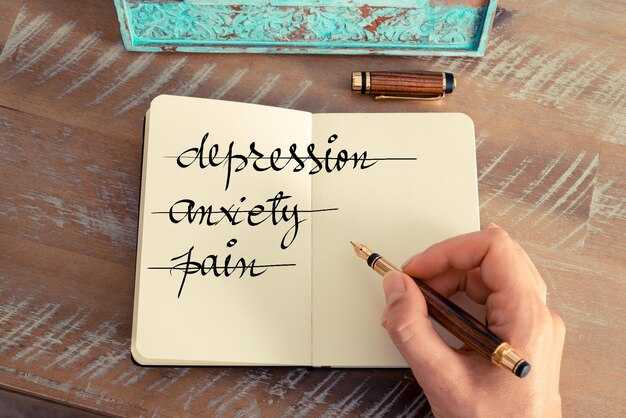 depression
anxiety
pain